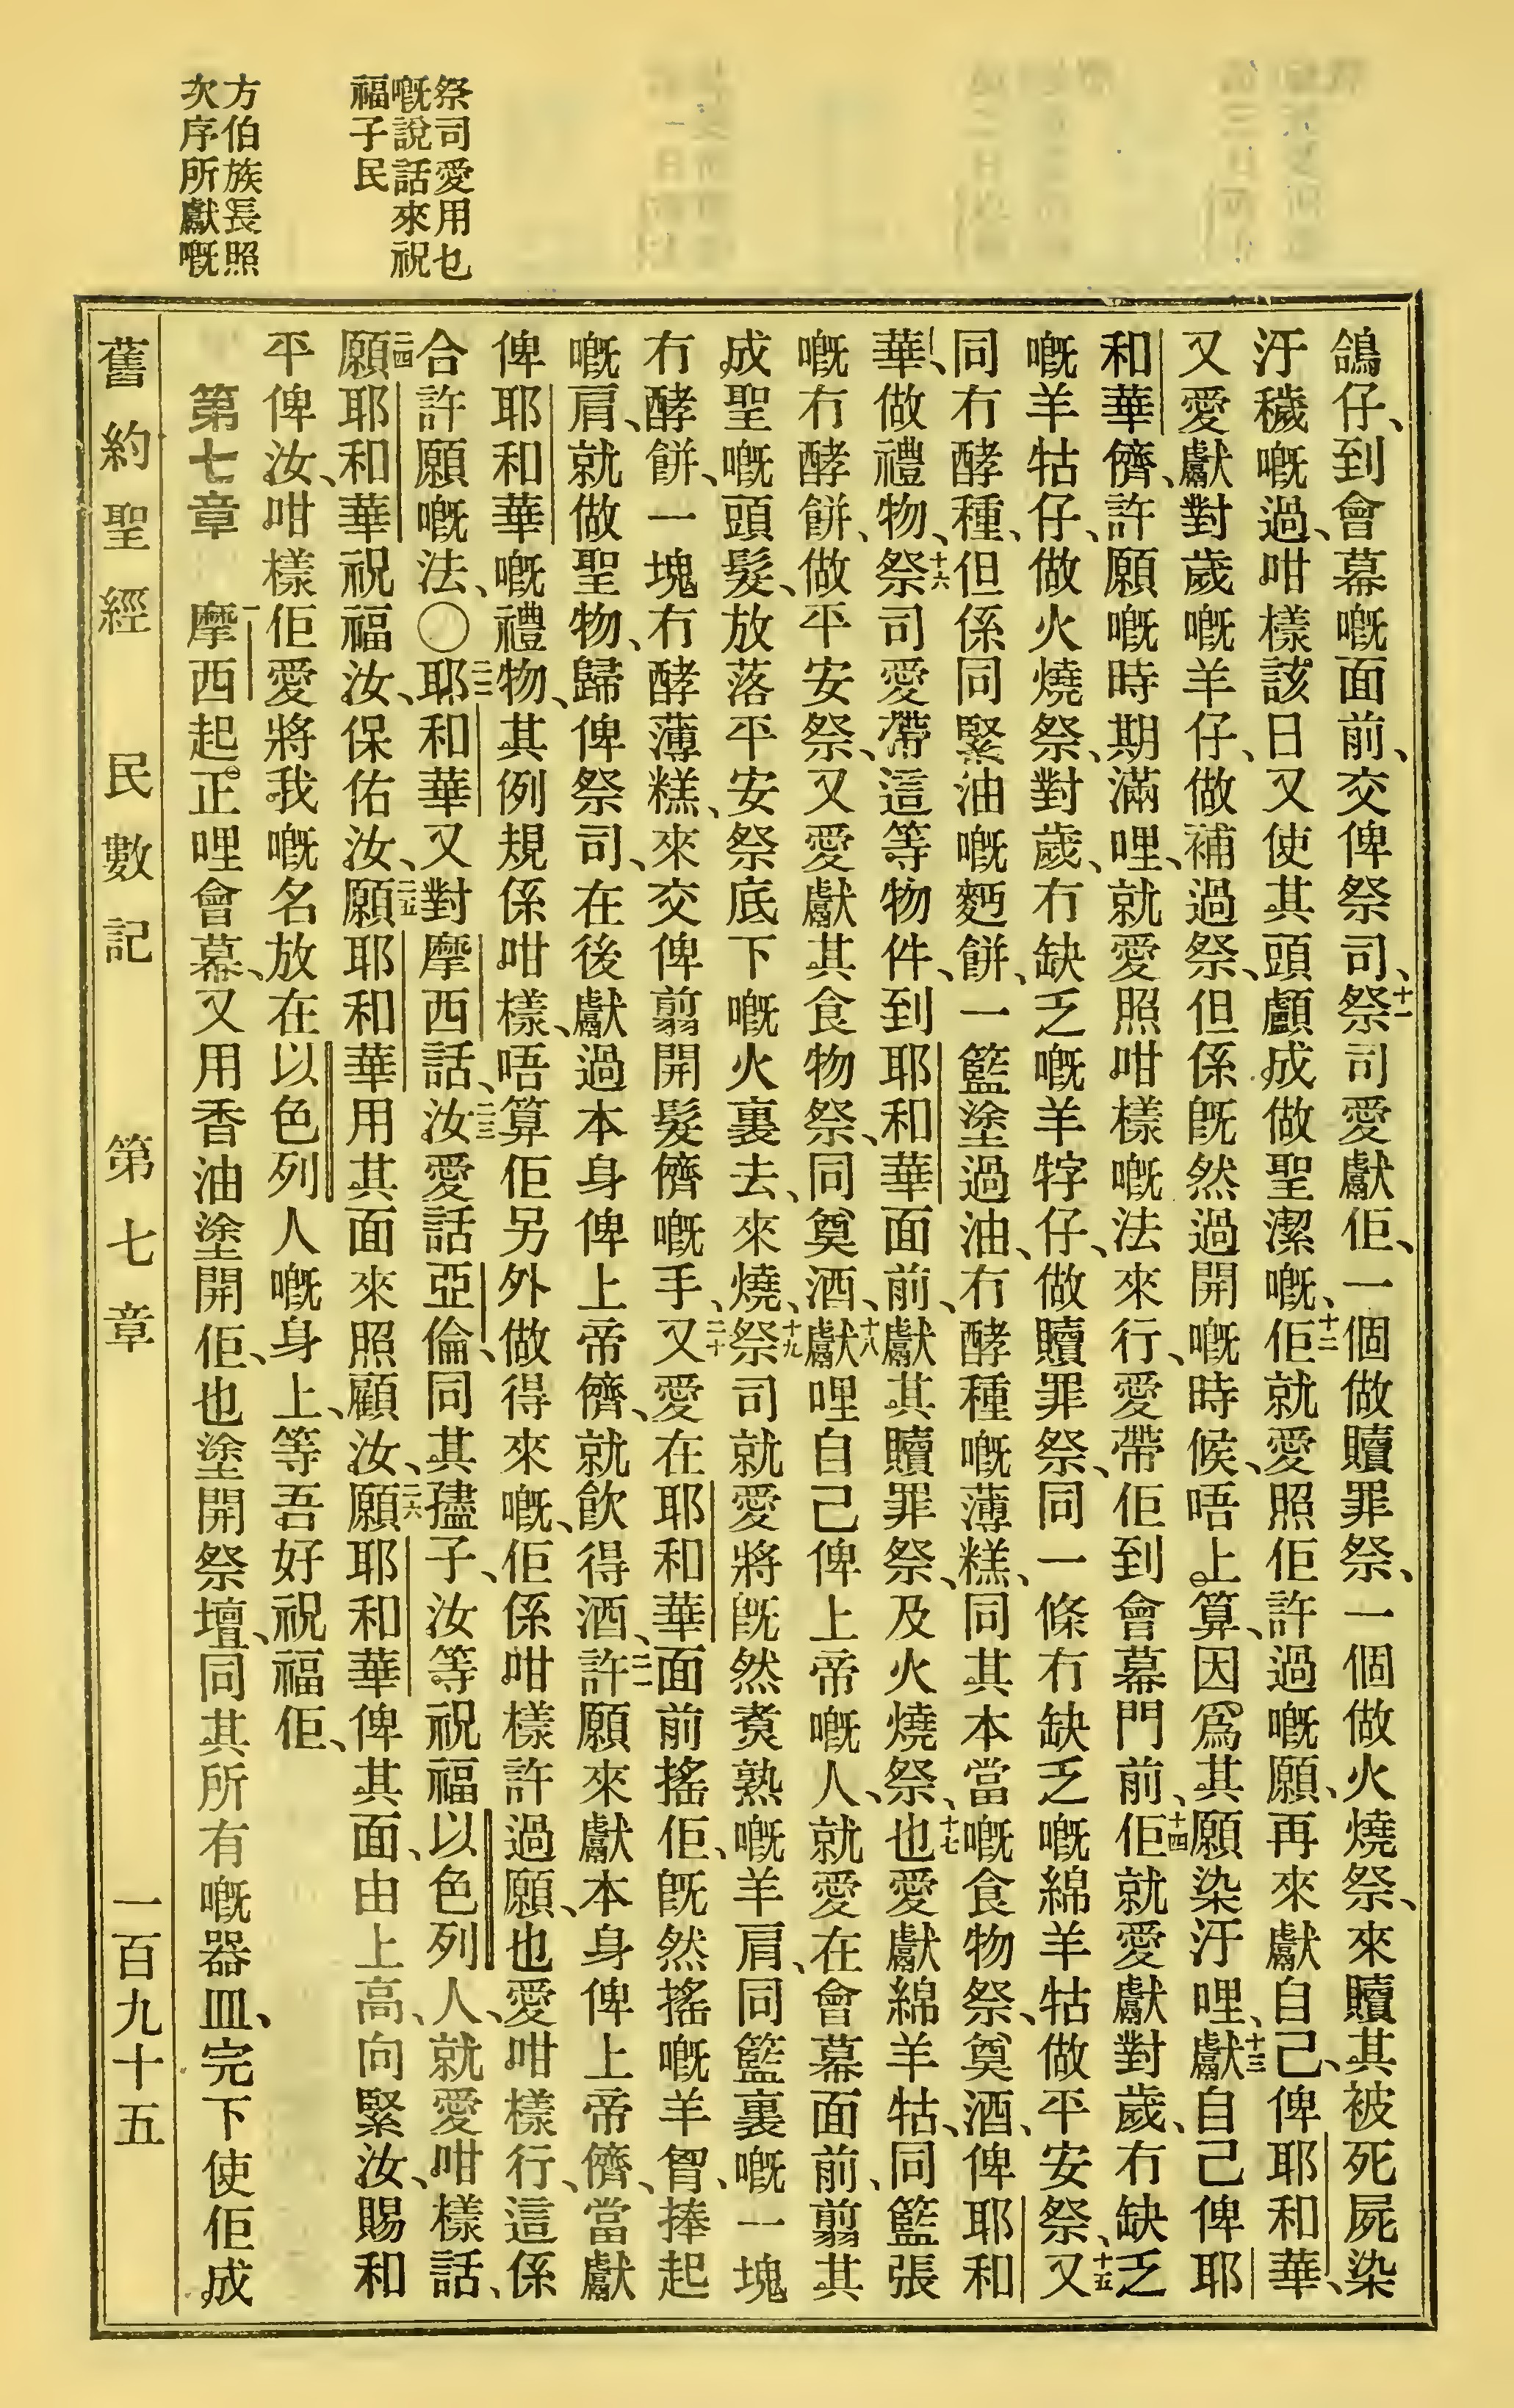 祭司愛用乜
嘅說話來祝
福子民
方伯族長照
次序所獻嘅
鴿仔、到會幕嘅面前、交俾祭司、十一祭司愛獻佢、一個做贖罪祭、一個做火燒祭、來贖其被死屍染
汙穢嘅過、咁樣該日又使其頭顱成做聖潔嘅、十二佢就愛照佢許過嘅願、再來獻自己、俾耶和華、
又愛獻對歲嘅羊仔、做補過祭、但係旣然過開嘅時候、唔上算、因爲其願染汙哩、十三獻自己俾耶
和華儕、許願嘅時期滿哩、就愛照咁樣嘅法來行、愛帶佢到會幕門前、十四佢就愛獻對歲、冇缺乏
嘅羊牯仔、做火燒祭、對歲、冇缺乏嘅羊牸仔、做贖罪祭、同一條冇缺乏嘅綿羊牯做平安祭、十五又
同冇酵種、但係同緊油嘅麪餅、一籃塗過油、冇酵種嘅薄糕、同其本當嘅食物祭、奠酒、俾耶和
華、做禮物、十六祭司愛帶這等物件、到耶和華面前、獻其贖罪祭、及火燒祭、十七也愛獻綿羊牯、同籃張
嘅冇酵餅、做平安祭、又愛獻其食物祭、同奠酒、十八獻哩自己俾上帝嘅人、就愛在會幕面前、翦其
成聖嘅頭髮、放落平安祭底下嘅火裏去、來燒、十九祭司就愛將旣然煑熟嘅羊肩、同籃裏嘅一塊
冇酵餅、一塊冇酵薄糕、來交俾翦開髮儕嘅手、二十又愛在耶和華面前搖佢、旣然搖嘅羊胷、捧起
嘅肩、就做聖物、歸俾祭司、在後獻過本身俾上帝儕、就飲得酒、二一許願來獻本身俾上帝儕、當獻
俾耶和華嘅禮物、其例規係咁樣、唔算佢另外做得來嘅、佢係咁樣許過願、也愛咁樣行、這係
合許願嘅法、〇二二耶和華又對摩西話、二三汝愛話亞倫、同其孻子、汝等祝福以色列人、就愛咁樣話、
二四願耶和華祝福汝、保佑汝、二五願耶和華用其面來照顧汝、二六願耶和華俾其面、由上高、向緊汝、賜和
平俾汝、咁樣佢愛將我嘅名放在以色列人嘅身上、等吾好祝福佢、
第七章　一摩西起正哩會幕、又用香油塗開佢、也塗開祭壇、同其所有嘅器皿、完下使佢成
舊約聖經　民數記　第七章　一百九十五